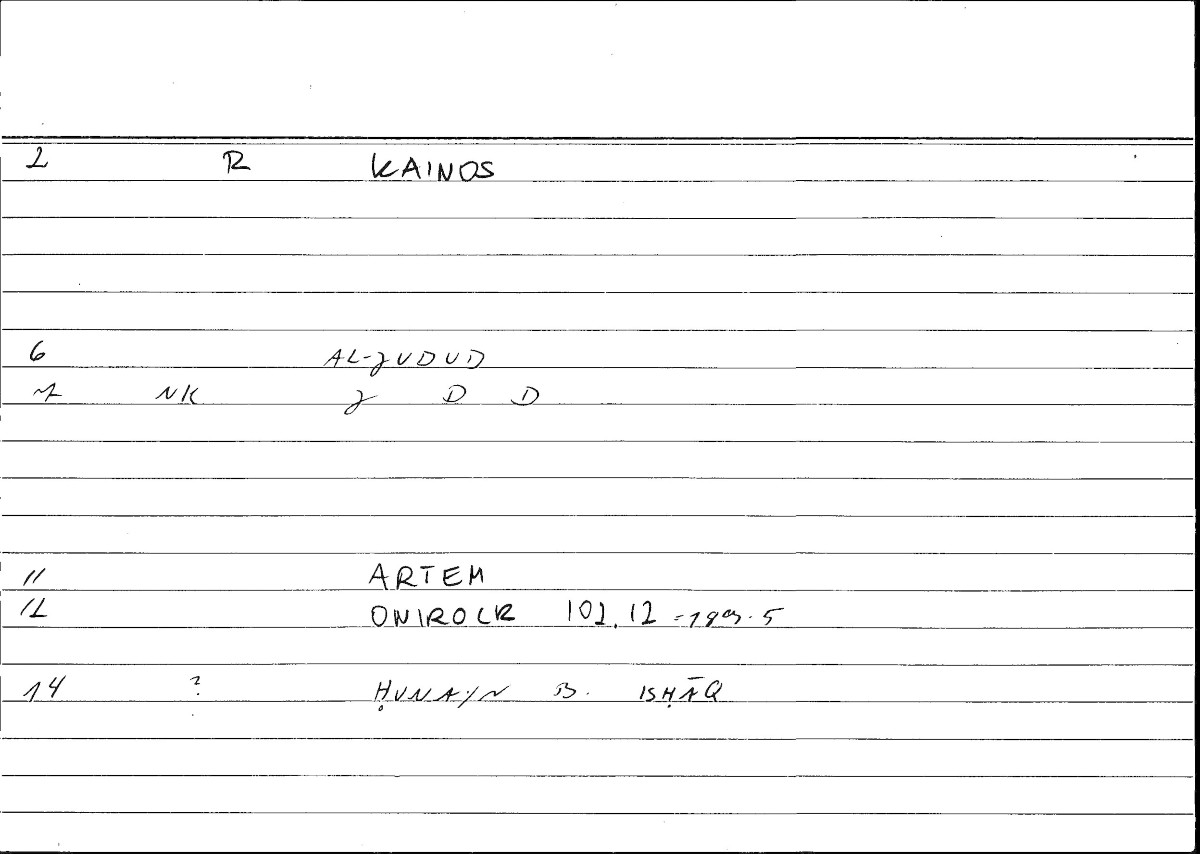 2 R KAINOS
6 AL-ǧUDUD
7 NK ǧ D D
11 ARTEM
12 ONIROCR 102.12
14 ? ḤUNAYN B. ISḤĀQ